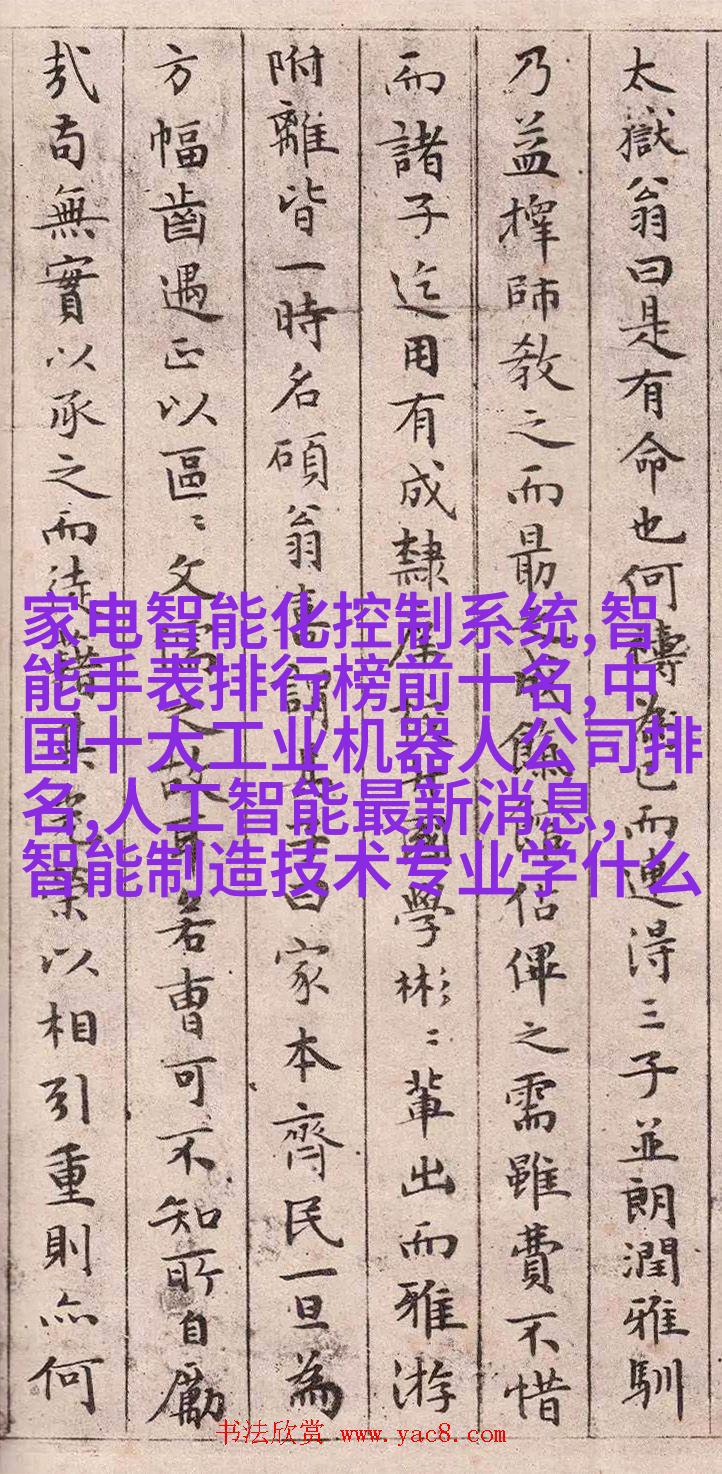 太獄翁曰是有命也何為已而連得三子並朗潤雅馴
乃益擇師教之而最成餼館佔俾之需雖費不惜
而諸子迄用有成隸國學彬〻輩出而雅游
附離皆一時名碩翁喜謂子曰家本齊民一旦為
方幅齒遇正以區〻文之故耳若曹可不知所自勵
哉苟無實以承之而徒藉其榮以相引重則亦何
家电智能化控制系统,智
能手表排行榜前十名,中
国十大工业机器人公司排
名,人工智能最新消息,
智能制造技术专业学什么
书法欣赏 www.yac8.com